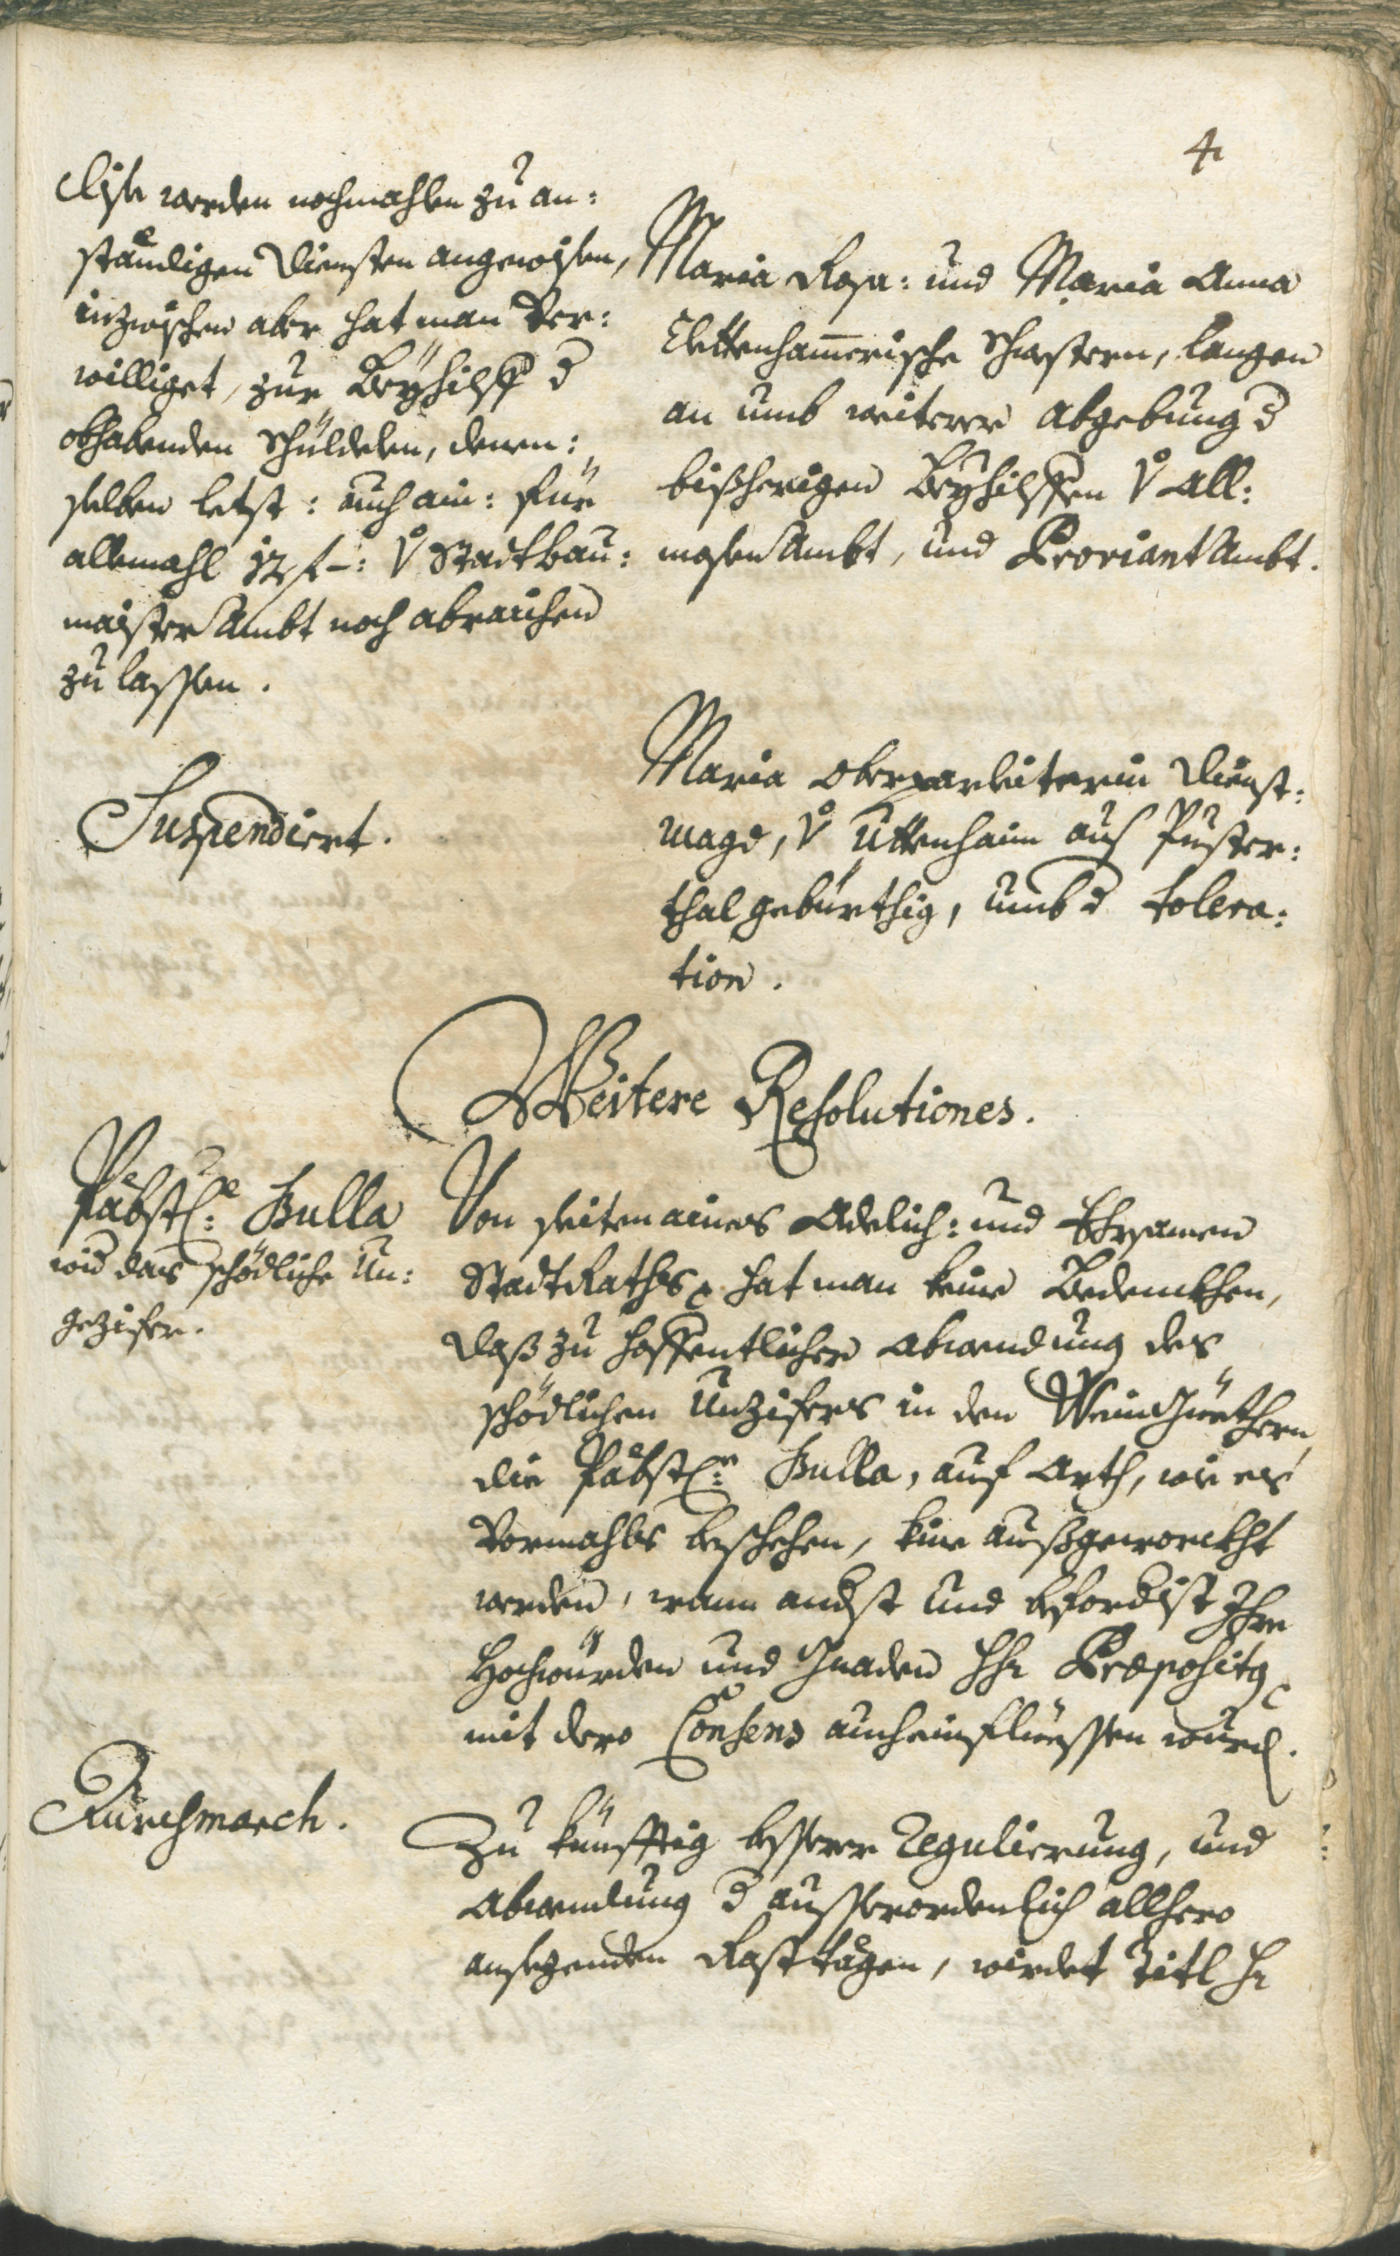 4
Dise werden nochmahlen zu an:
ständigen Diensten angewisen,
inzwischen aber hat man ver:
williget, zur Beyhilff d
obhabenden Schulden, denen:
selben letst: auch ain: für
allemahl 12 f –: v Stadtbau:
maister Ambt noch abraichen
zu lassen.
Maria Rosa: und Maria Anna
Clettenham̅erische Schwestern, langen
an umb weitere abgebung d
bißherigen Beyhilffen v All:
mosen Ambt, und Proviant Ambt.
Suspendiert.
Maria Oberparleiterin Dienst:
magd, v Uttenhaim aus Puster:
thal gebürthig, umb d tolera:
tion.
Weitere Resolutiones.
Päbstl: Bulla
wid das schödliche Un:
gezifer.
Von seiten aines Adelich: und Ehrsamen
Stadt Raths, hat man keine Bedenckhen,
daß zu hoffentlicher abwendung des
schödlichen Unzifers in den Wein Güethern
die Päbstl: Bulla, auf arth, wie es
vormahls beschehen, könne außgewürckht
werden, wann andst und beford ist Ihre
Hochwürden und Gnaden Hr Præpositg
mit dero Consens auch einfliessen wurd.
Durchmarch.
Zu künfftig besserer Regulierung, und
abwendung d ausserordenlich allhero
ansezenden Rasttägen, wirdet Titl Hr